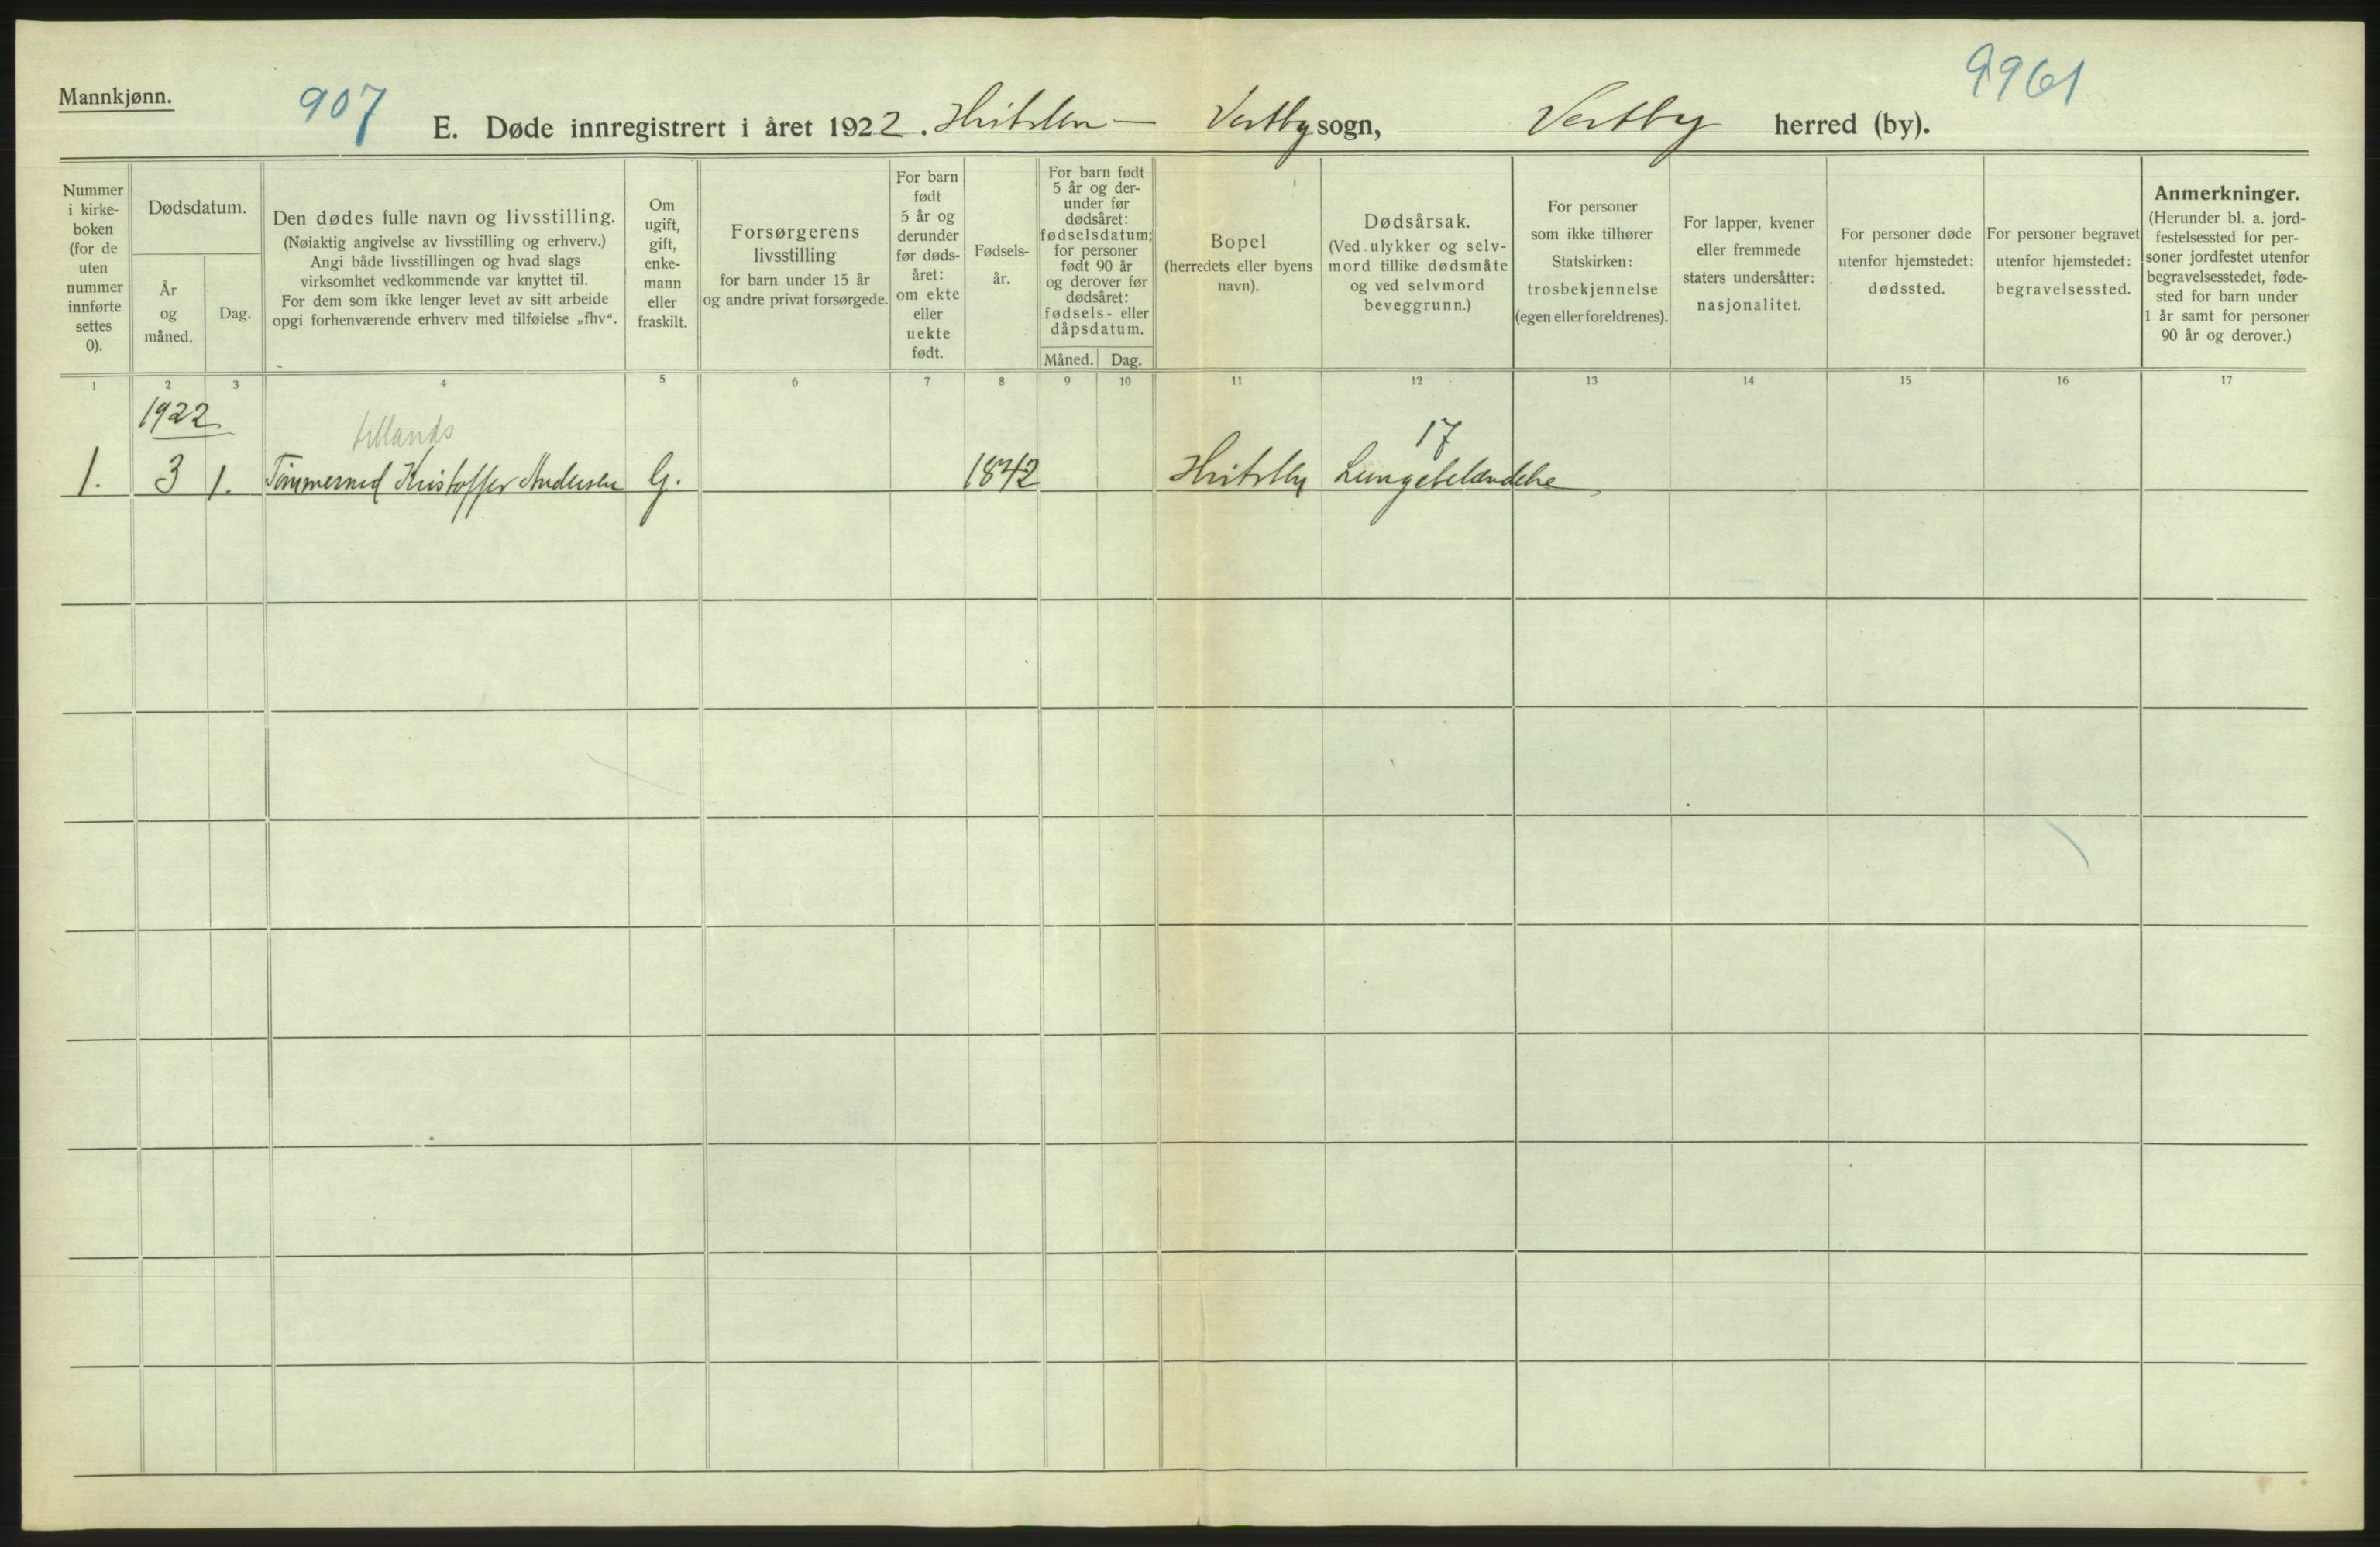 Mannkjønn.
907
9961
E. Døde innregistrert i året 1922. Hvitsten — Vestby sogn, Vestby herred (by).
Nummer i kirke-
boken
(for de
uten
nummer
innførte
settes
0).
Dødsdatum.
År
og
måned.
Dag.
Den dødes fulle navn og livsstilling.
(Nøiaktig angivelse av livsstilling og erhverv.)
Angi både livsstillingen og hvad slags
virksomhet vedkommende var knyttet til.
For dem som ikke lenger levet av sitt arbeide
opgi forhenværende erhverv med tilføielse „fhv“.
Om
ugift,
gift,
enke-
mann
eller
fraskilt.
Forsørgerens
livsstilling
for barn under 15 år
og andre privat forsørgede.
For barn
født
5 år og
derunder
før døds-
året:
om ekte
eller
uekte
født.
Fødsels-
år.
For barn født
5 år og der-
under før
dødsåret:
fødselsdatum;
for personer
født 90 år
og derover før
dødsåret:
fødsels- eller
dåpsdatum.
Måned. Dag.
Bopel
(herredets eller byens
navn).
Dødsårsak.
(Ved ulykker og selv-
mord tillike dødsmåte
og ved selvmord
beveggrunn.)
For personer
som ikke tilhører
Statskirken:
trosbekjennelse
(egen eller foreldrenes).
For lapper, kvener
eller fremmede
staters undersåtter:
nasjonalitet.
For personer døde
utenfor hjemstedet:
dødssted.
For personer begravet
utenfor hjemstedet:
begravelsessted.
Anmerkninger.
(Herunder bl. a. jord-
festelsessted for per-
soner jordfestet utenfor
begravelsesstedet, føde-
sted for barn under
1 år samt for personer
90 år og derover.)
1 2 3 4 5 6 7 8 9 10 11 12 13 14 15 16 17
1922
17
1. 3 1. Tømmermd Kristoffer Andersen G. 1842 Hvitsten Lungebetændelse